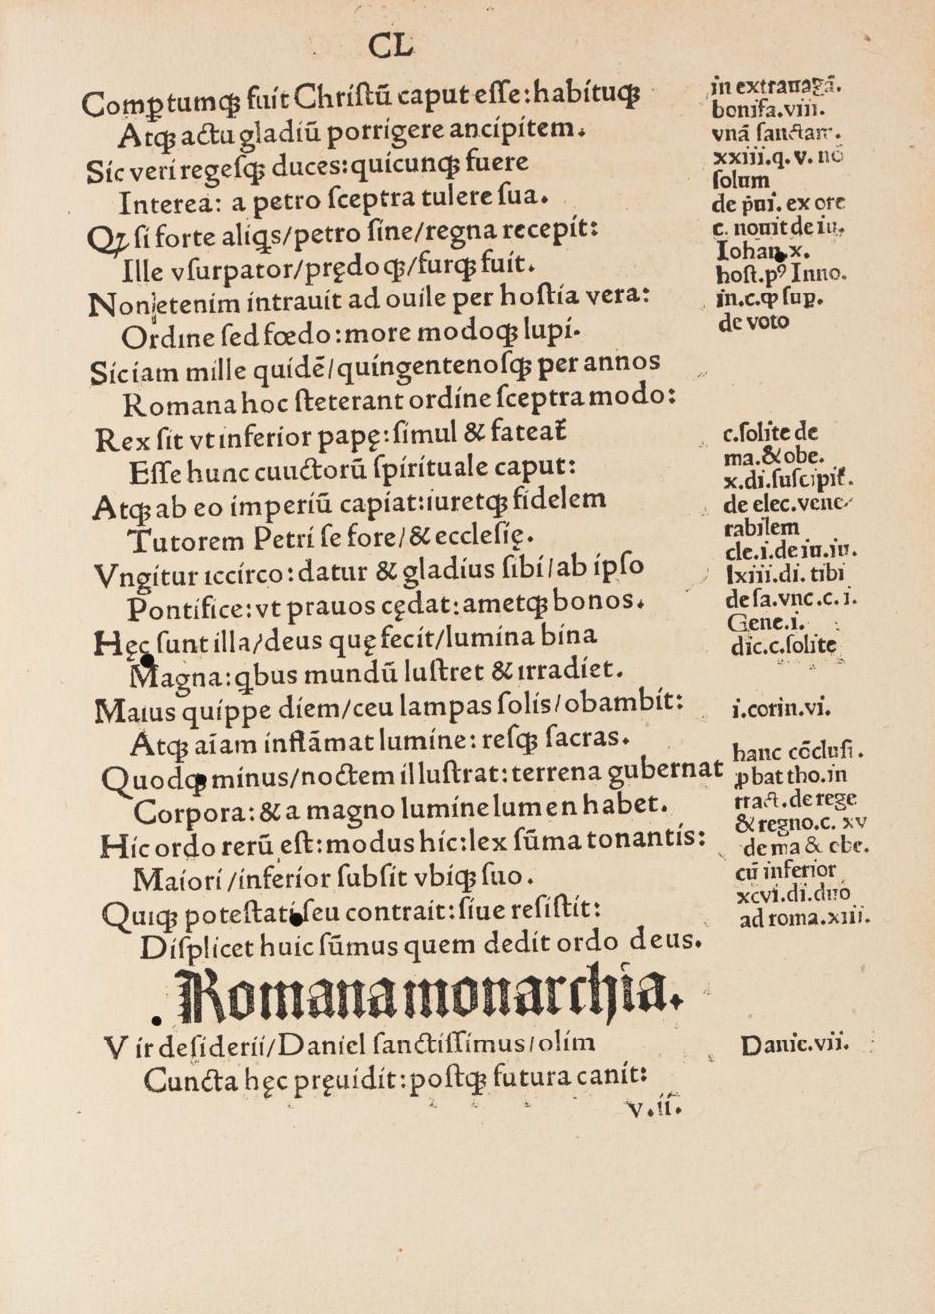 CL
Comꝑtumqꝫ fuit Chriſtū caput eſſe:habituqꝫ
Atqꝫ actu gladiū porrigere ancipitem.
Sic veri regeſqꝫ duces:quicunqꝫ fuere
Interea: a petro ſceptra tulere ſua.
Qꝫ ſi forte aliqs/petro ſine/regna recepit:
Ille vſurpator/prędo qꝫ/furqꝫ fuit.
Non etenim intrauit ad ouile per hoſtia vera:
Ordine ſed fœdo:more modoqꝫ lupi.
Sic iam mille quidē/quingentenoſqꝫ per annos
Romana hoc ſteterant ordine ſceptra modo:
Rex ſit vt inferior papę:ſimul & fateaꝛ̄
Eſſe hunc cuuctorū ſpirituale caput:
Atqꝫ ab eo imperiū capiat:iuretqꝫ fidelem
Tutorem Petri ſe fore/& eccleſię.
Vngitur iccirco:datur & gladius ſibi/ab ipſo
Pontifice:vt prauos cędat:ametqꝫ bonos.
Hęc ſunt illa/deus quę fecit/lumina bina
Magna:qbus mundū luſtret & irradiet.
Maius quippe diem/ceu lampas ſolis/obambit:
Atqꝫ aīam inflāmat lumine:reſqꝫ ſacras.
Quodqꝫ minus/noctem illuſtrat:terrena gubernat
Corpora:& a magno lumine lumen habet.
Hic ordo rerū eſt:modus hic:lex ſūma tonantis:
Maiori/inferior ſubſit vbiqꝫ ſuo.
Quiqꝫ poteſtati ſeu contrait:ſiue reſiſtit:
Diſplicet huic ſūmus quem dedit ordo deus.
Romana monarchia.
Vir deſiderii/Daniel ſanctiſſimus/olim
Cuncta hęc pręuidit:poſtqꝫ futura canit:
v.ii.
in extrauagā.
bonifa.viii.
vnā ſanctam.
xxiii.q.v.nō
ſolum
de p̄ni.ex ore
c. nouit de iu.
Iohan.x.
hoſt.pꝰ Inno.
in.c.ꝙ ſuꝑ.
de voto
c.ſolite de
ma.&obe.
x.di.ſuſcipiꝛ̄.
de elec.vene-
rabilem
cle.i.de iu.iu.
lxiii.di. tibi
de ſa.vnc.c.i.
Gene.i.
dic.c.ſolite
i.corin.vi.
hanc cōcluſi.
ꝓbat tho.in
tract.de rege
& regno.c. xv
de ma & obe.
cū inferior
xcvi.di.duo
ad roma.xiii.
Danie.vii.